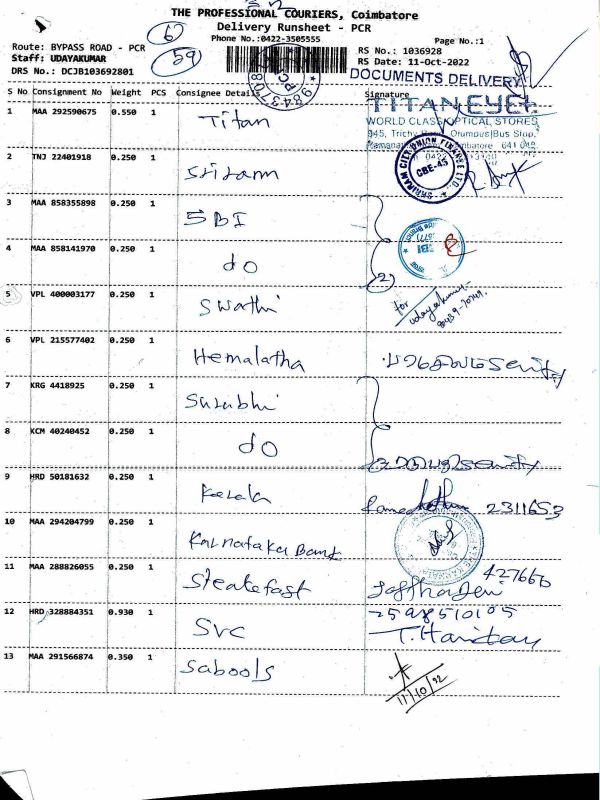 THE PROFESSIONAL COURIERS, Coimbatore
Delivery Runsheet - PCR
Phone No.:0422-3505555
Page No.:1
Route: BYPASS ROAD - PCR
Staff: UDAYAKUMAR
DRS No.: DCJB103692801
59
RS No.: 1036928
RS Date: 11-Oct-2022
DOCUMENTS DELIVERY
S No Consignment No Weight PCS Consignee Details Signature
1 MAA 292590675 0.550 1 Titan
TITAN EYE+
WORLD CLASS OPTICAL STORES
2 TNJ 22401918 0.250 1 Sriram
SHRIRAM CITY UNION FINANCE LTD.
CBE-45
3 MAA 858355898 0.250 1 SBI
4 MAA 858141970 0.250 1 do
2
SBI
5 VPL 400003177 0.250 1 Swathi
for
udayakumar
6 VPL 215577402 0.250 1 Hemalatha
7 KRG 4418925 0.250 1 Surabhi
8 KCM 40240452 0.250 1 do
9 HRD 50181632 0.250 1 Kerala
2311653
10 MAA 294204799 0.250 1 Karnataka Bank
11 MAA 288826055 0.250 1 Steakefast
427660
12 HRD 328884351 0.930 1 SVC
13 MAA 291566874 0.350 1 Sabools